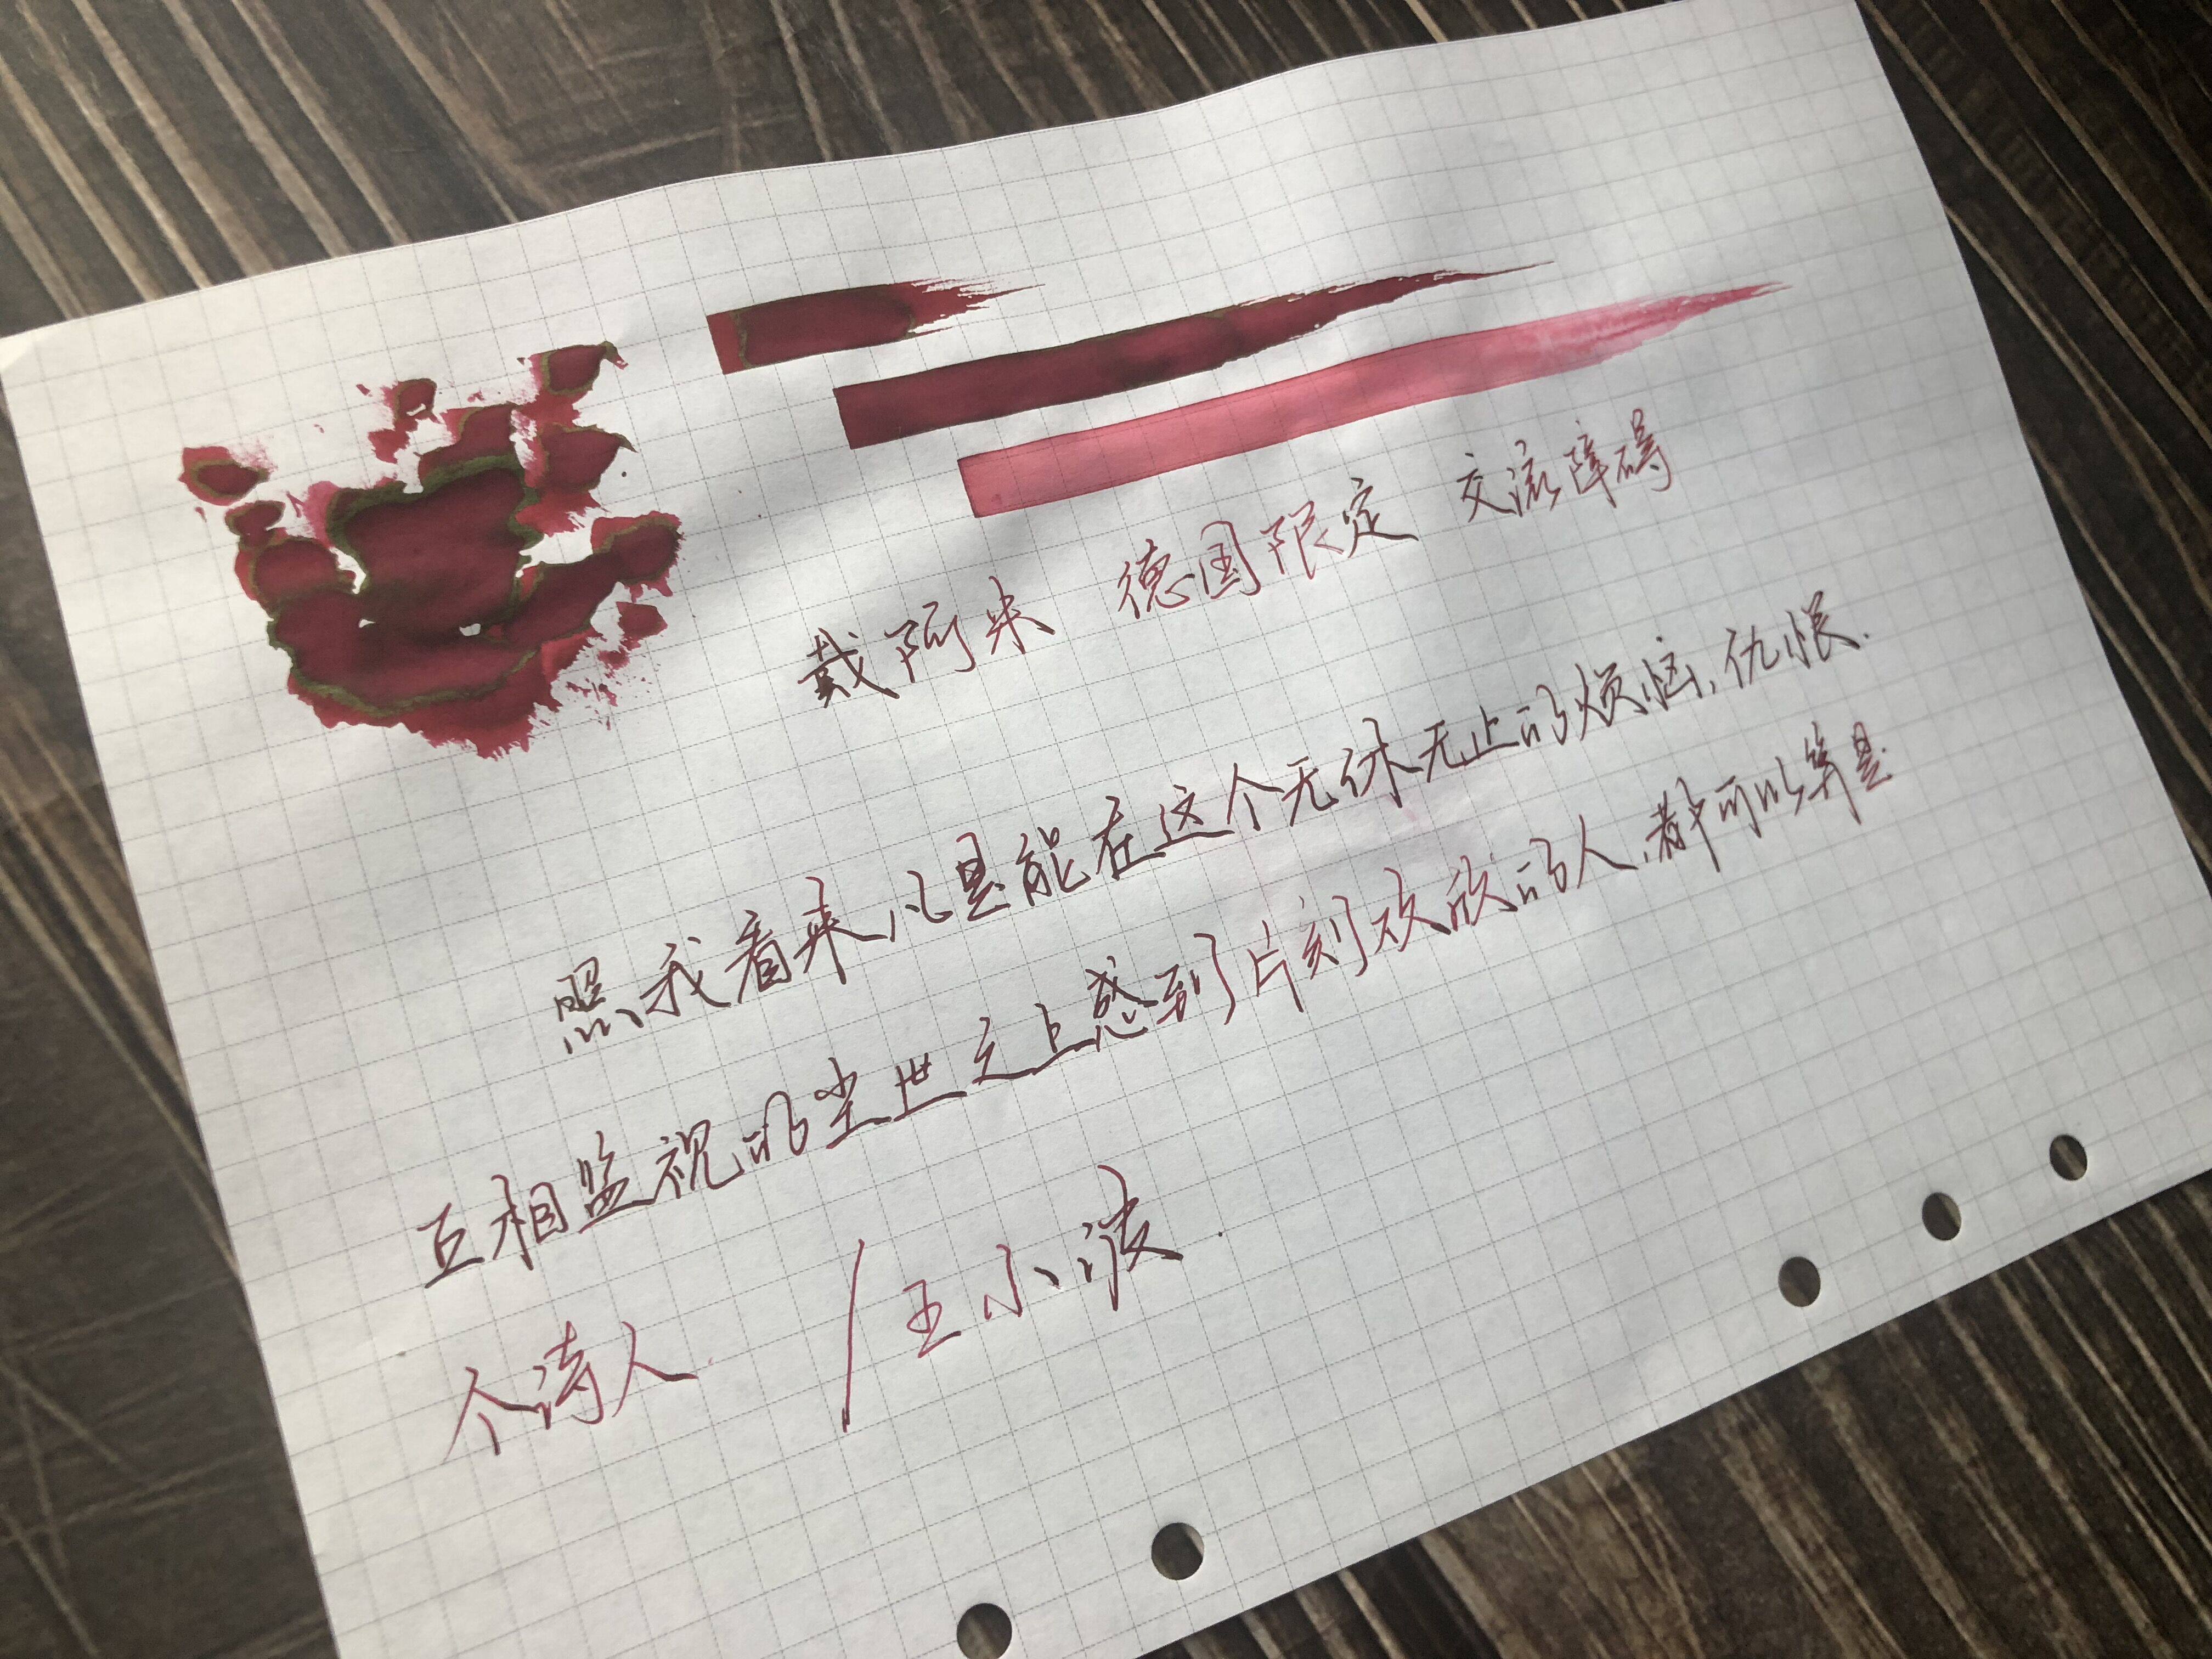 戴阿米 德国限定 交流障碍
照我看来,凡是能在这个无休无止的烦恼,仇恨.
互相监视的尘世之上感到片刻欢欣的人,都可以算是
个诗人. /王小波.